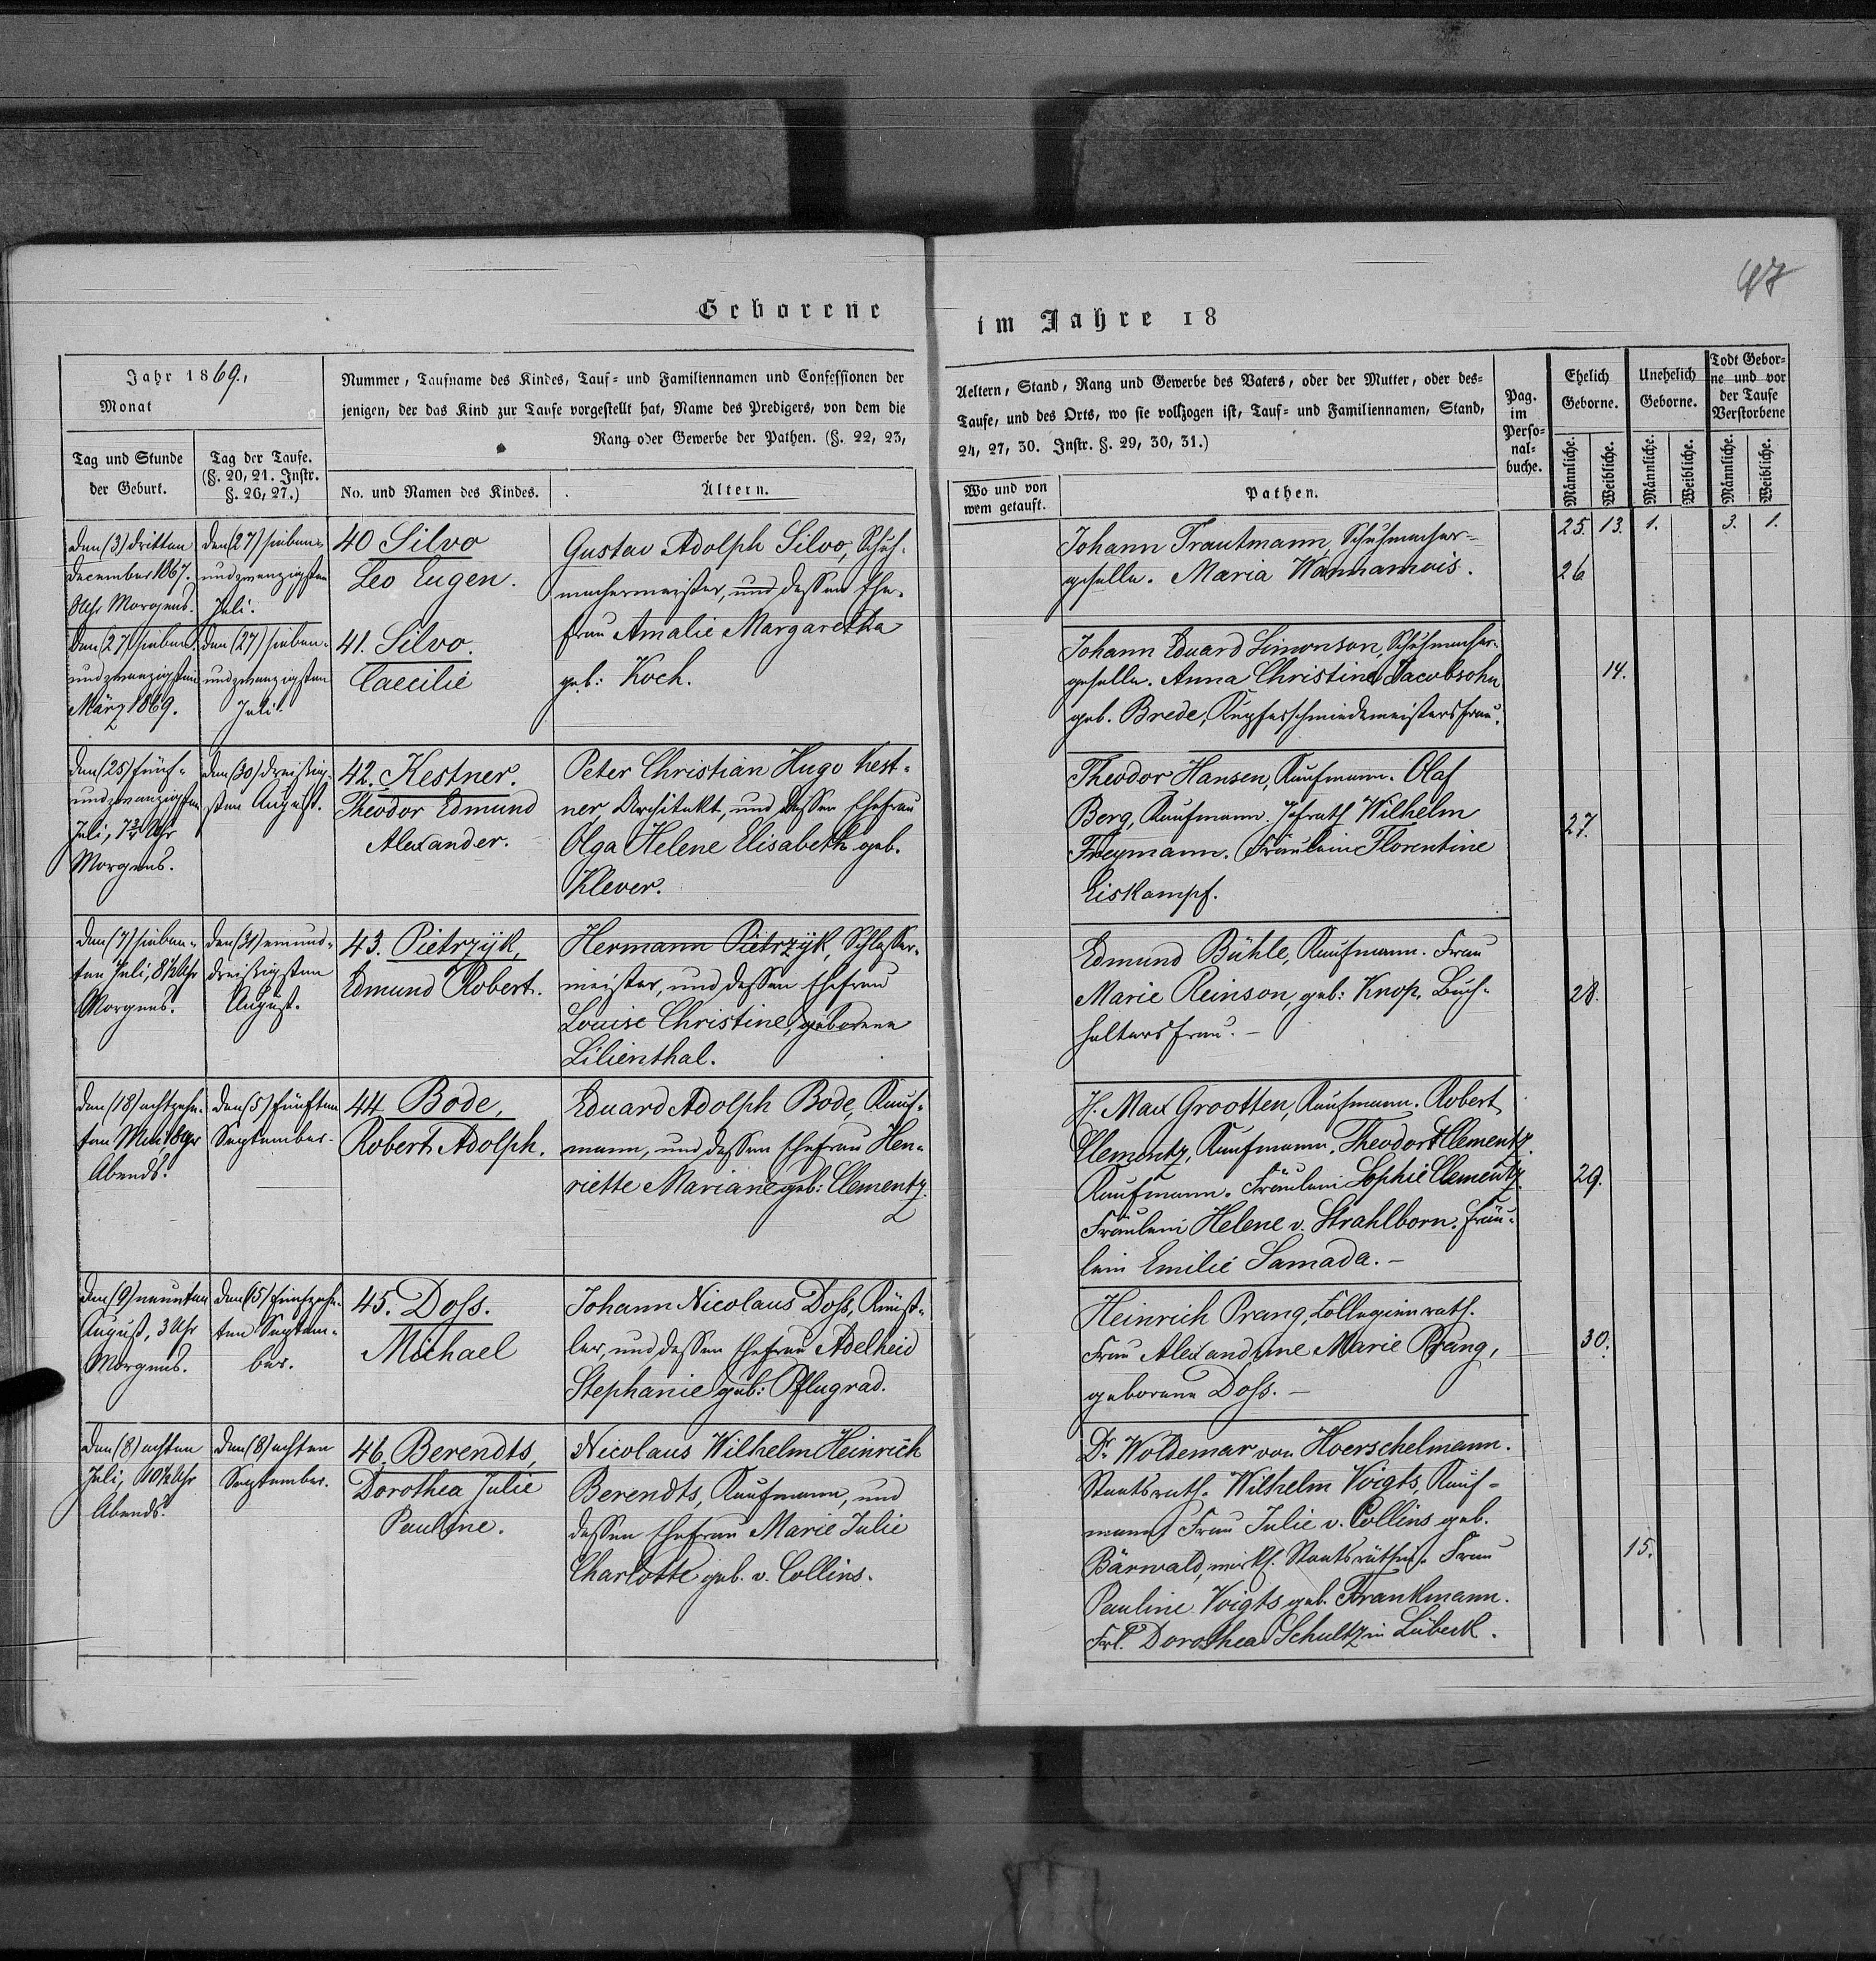 97
Geborene im Jahre 18
Jahr 1869.,
Monat
Nummer, Taufname des Kindes, Tauf- und Familiennamen und Confessionen der
jenigen, der das Kind zur Taufe vorgestellt hat, Name des Predigers, von dem die
Rang oder Gewerbe der Pathen. (§. 22, 23,
Tag und Stunde
der Geburt.
Tag der Taufe.
(§. 20, 21. Instr.
§. 26, 27.)
No. und Namen des Kindes.
Ältern.
Aeltern, Stand, Rang und Gewerbe des Vaters, oder der Mutter, oder des-
Taufe, und des Orts, wo sie vollzogen ist, Tauf- und Familiennamen, Stand,
24, 27, 30. Instr. §. 29, 30, 31.)
Wo und von
wem getauft.
Pathen.
Pag.
im
Perso-
nal-
buche.
Ehelich
Geborne.
Unehelich
Geborne.
Todt Gebor-
ne und vor
der Taufe
Verstorbene
Männliche.
Weibliche.
Männliche.
Weibliche.
Männliche.
Weibliche.
den (3) dritten
December 1867.
Uhr Morgens.
den (27) sieben-
undzwanzigsten
Juli.
40 Silvo
Leo Eugen.
Gustav Adolph Silvo, Schuh-
machermeister, und dessen Ehe-
frau Amalie Margaretha
geb: Koch.
Johann Trautmann, Schuhmacher-
geselle. Maria Wannamois.
25. 13. 1. 3. 1.
26
den (27) sieben-
undzwanzigsten
März 1869.
den (27) sieben-
undzwanzigsten
Juli.
41. Silvo.
Caecilie
Johann Eduard Simonson, Schuhmacher-
geselle. Anna Christine Jacobsohn
geb. Brede, Kupferschmiedemeistersfrau.
14.
den (25) fünf-
undzwanzigsten
Juli, 7¾ Uhr
Morgens.
den (30) dreißig-
sten August.
42. Kestner.
Theodor Edmund
Alexander.
Peter Christian Hugo Kest-
ner, Architekt, und dessen Ehefrau
Olga Helene Elisabeth geb.
Klever.
Theodor Hansen, Kaufmann. Olaf
Berg, Kaufmann. Hofrath Wilhelm
Freymann. Fräulein Florentine
Eiskampf.
27.
den (7) sieben-
ten Juli, 8½ Uhr
Morgens.
den (31) einund-
dreißigsten
August.
43. Pietrzyk,
Edmund Robert.
Hermann Pietrzyk, Schlosser-
meister, und dessen Ehefrau
Louise Christine, geborene
Lilienthal.
Edmund Bühle, Kaufmann. Frau
Marie Reinson, geb: Knop, Buch-
haltersfrau. –
28.
den (18) achtzehn-
ten Mai 8 Uhr
Abends.
den (5) fünften
September.
44 Bode,
Robert Adolph.
Eduard Adolph Bode, Kauf-
mann, und dessen Ehefrau Hen-
riette Mariane geb: Clementz.
H. Max Grootten, Kaufmann. Robert
Clementz, Kaufmann. Theodor Clementz.
Kaufmann. Fräulein Sophie Clementz.
Fräulein Helene v. Strahlborn. Fräu-
lein Emilie Samada. –
29.
den (9) neunten
August, 3 Uhr
Morgens.
den (15) fünfzehn-
ten Septem-
ber.
45. Doss.
Michael
Johann Nicolaus Doss, Künst-
ler, und dessen Ehefrau Adelheid
Stephanie geb: Pflugrad.
Heinrich Prang, Collegienrath.
Frau Alexandrine Marie Prang,
geborene Doss. –
30.
den (8) achten
Juli, 10½ Uhr
Abends.
den (8) achten
September.
46. Berendts,
Dorothea Julie
Pauline.
Nicolaus Wilhelm Heinrich
Berendts, Kaufmann, und
dessen Ehefrau Marie Julie
Charlotte geb. v. Collins.
Dr. Woldemar von Hoerschelmann.
Staatsrath. Wilhelm Voigts, Kauf-
mann. Frau Julie v. Collins geb.
Bärwald, wirkl. Staatsräthin. Frau
Pauline Voigts geb. Frankmann.
Frl. Dorothea Schultz in Lübeck.
15.